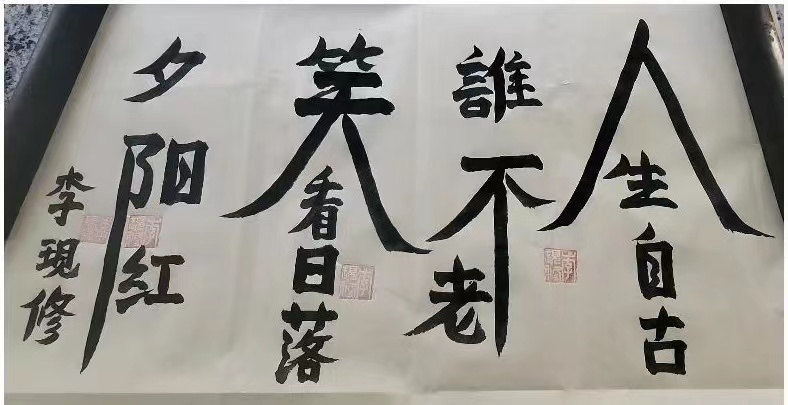 人生自古
誰不老
笑看日落
夕阳紅
李現修